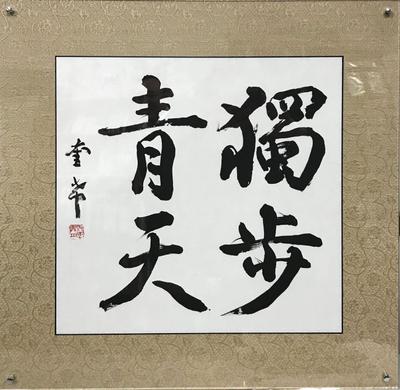 獨步
青天